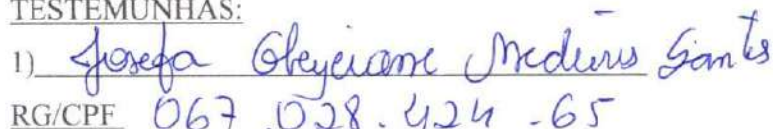 TESTEMUNHAS:
1) Josefa Gleyciane Medeiros Santos
RG/CPF 067.028.424-65